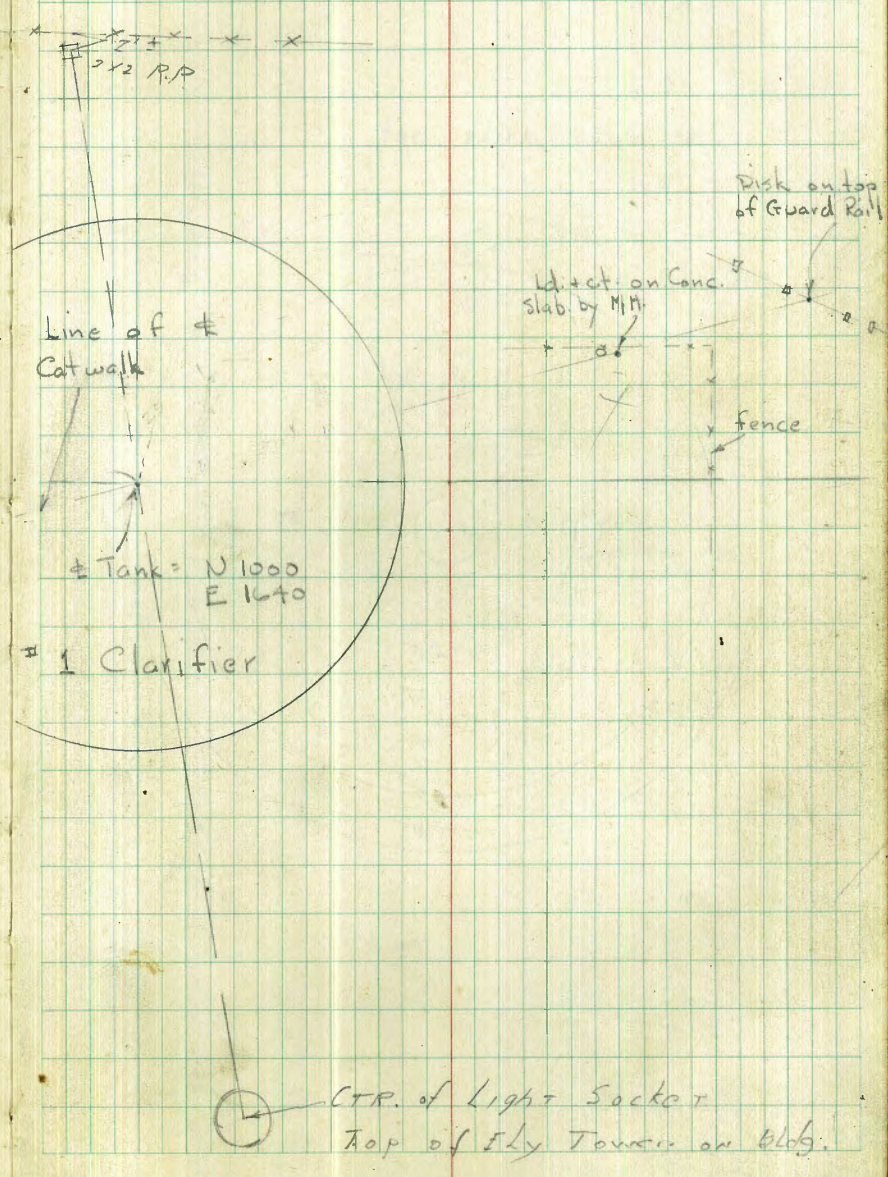 2' ±
2x2 R.P
Disk on top
of Guard Rail
Ld. + ct. on Conc.
Slab. by M.H.
Line of ℄
Catwalk
fence
℄ Tank = N 1000
E 1640
# 1 Clarifier
CTR. of Light Socket
Top of Fly Tower on bldg.